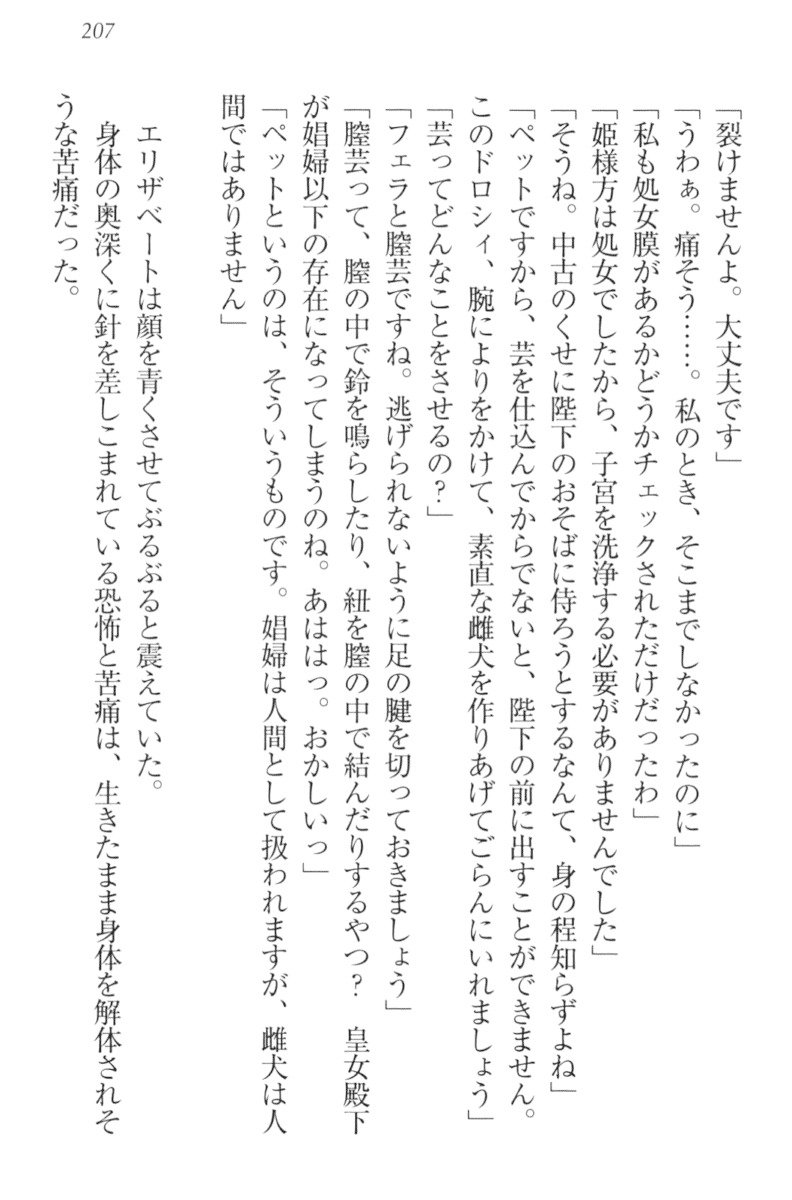 207
「裂けませんよ。大丈夫です」
「うわぁ。痛そう……。私のとき、そこまでしなかったのに」
「私も処女膜があるかどうかチェックされただけだったわ」
「姫様方は処女でしたから、子宮を洗浄する必要がありませんでした」
「そうね。中古のくせに陛下のおそばに侍ろうとするなんて、身の程知らずよね」
「ペットですから、芸を仕込んでからでないと、陛下の前に出すことができません。
このドロシィ、腕によりをかけて、素直な雌犬を作りあげてごらんにいれましょう」
「芸ってどんなことをさせるの？」
「フェラと膣芸ですね。逃げられないように足の腱を切っておきましょう」
「膣芸って、膣の中で鈴を鳴らしたり、紐を膣の中で結んだりするやつ？　皇女殿下
が娼婦以下の存在になってしまうのね。あははっ。おかしいっ」
「ペットというのは、そういうものです。娼婦は人間として扱われますが、雌犬は人
間ではありません」
エリザベートは顔を青くさせてぶるぶると震えていた。
身体の奥深くに針を差しこまれている恐怖と苦痛は、生きたまま身体を解体されそ
うな苦痛だった。